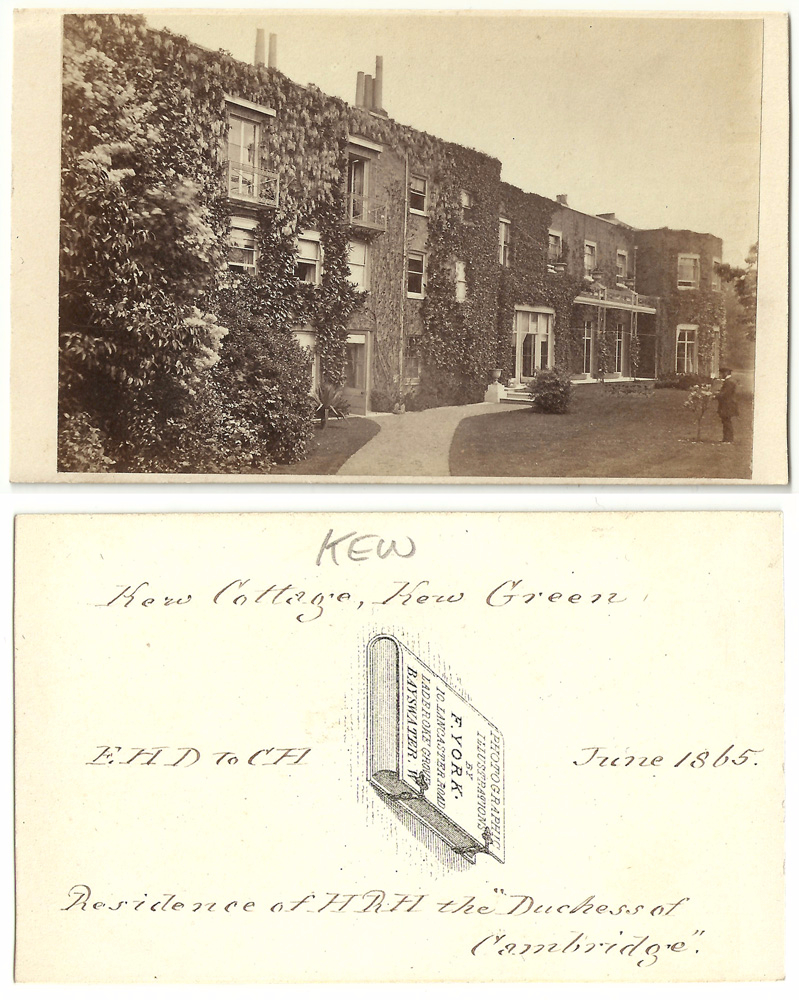 KEW
Kew Cottage, Kew Green.
PHOTOGRAPHIC
ILLUSTRATIONS
BY
F. YORK.
10, LANCASTER ROAD
LADBROKE GROVE
BAYSWATER. W
F.H.D to CH
June 1865.
Residence of HRH the "Duchess of
Cambridge".